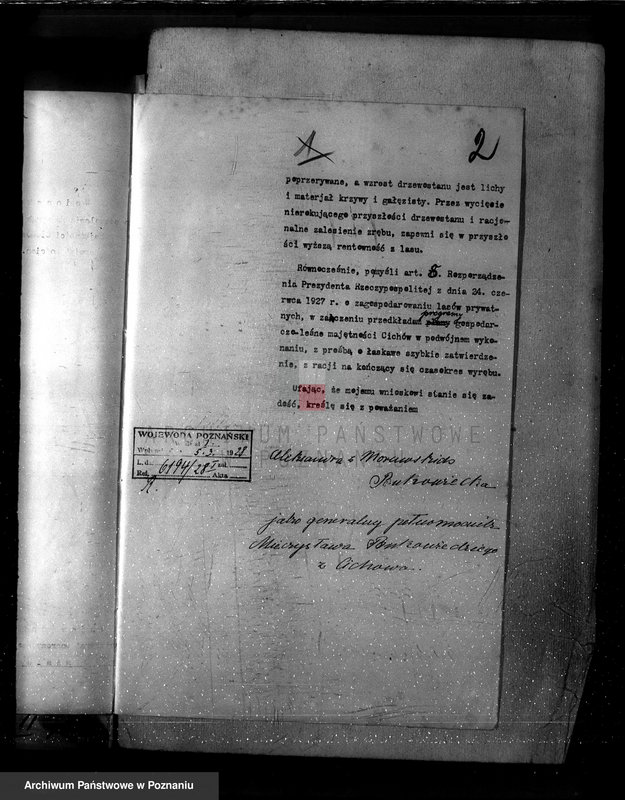 1
2
poprzerywane, a wzrost drzewostanu jest lichy
i materjał krzywy i gałęzisty. Przez wycięcie
nierokującego przyszłości drzewostanu i racjo-
nalne zalesienie zrębu, zapewni się w przyszło
ści wyższą rentowność z lasu.
Równocześnie, pomyśli art. 5. Rozporządze-
nia Prezydenta Rzeczypospolitej z dnia 24. cze-
rwca 1927 r. o zagospodarowaniu lasów prywat-
programy
nych, w załączeniu przedkładam plany gospodar-
czo-leśne majętności Cichów w podwójnem wyko-
naniu, z prośbą o łaskawe szybkie zatwierdze-
nie, z racji na kończący się czasokres wyrębu.
Ufając, że mojemu wnioskowi stanie się za-
dość, kreślę się z poważaniem
ARCHIWUM PAŃSTWOWE
W POZNANIU
WOJEWODA POZNAŃSKI
5. 3. 1928
L. dz. 6194/28 I zał.
Ref. Akta
Aleksandra z Morawskich
Bukowiecka
jako generalny pełnomocnik
Mieczysława Bukowieckiego
z Cichowa.
Archiwum Państwowe w Poznaniu